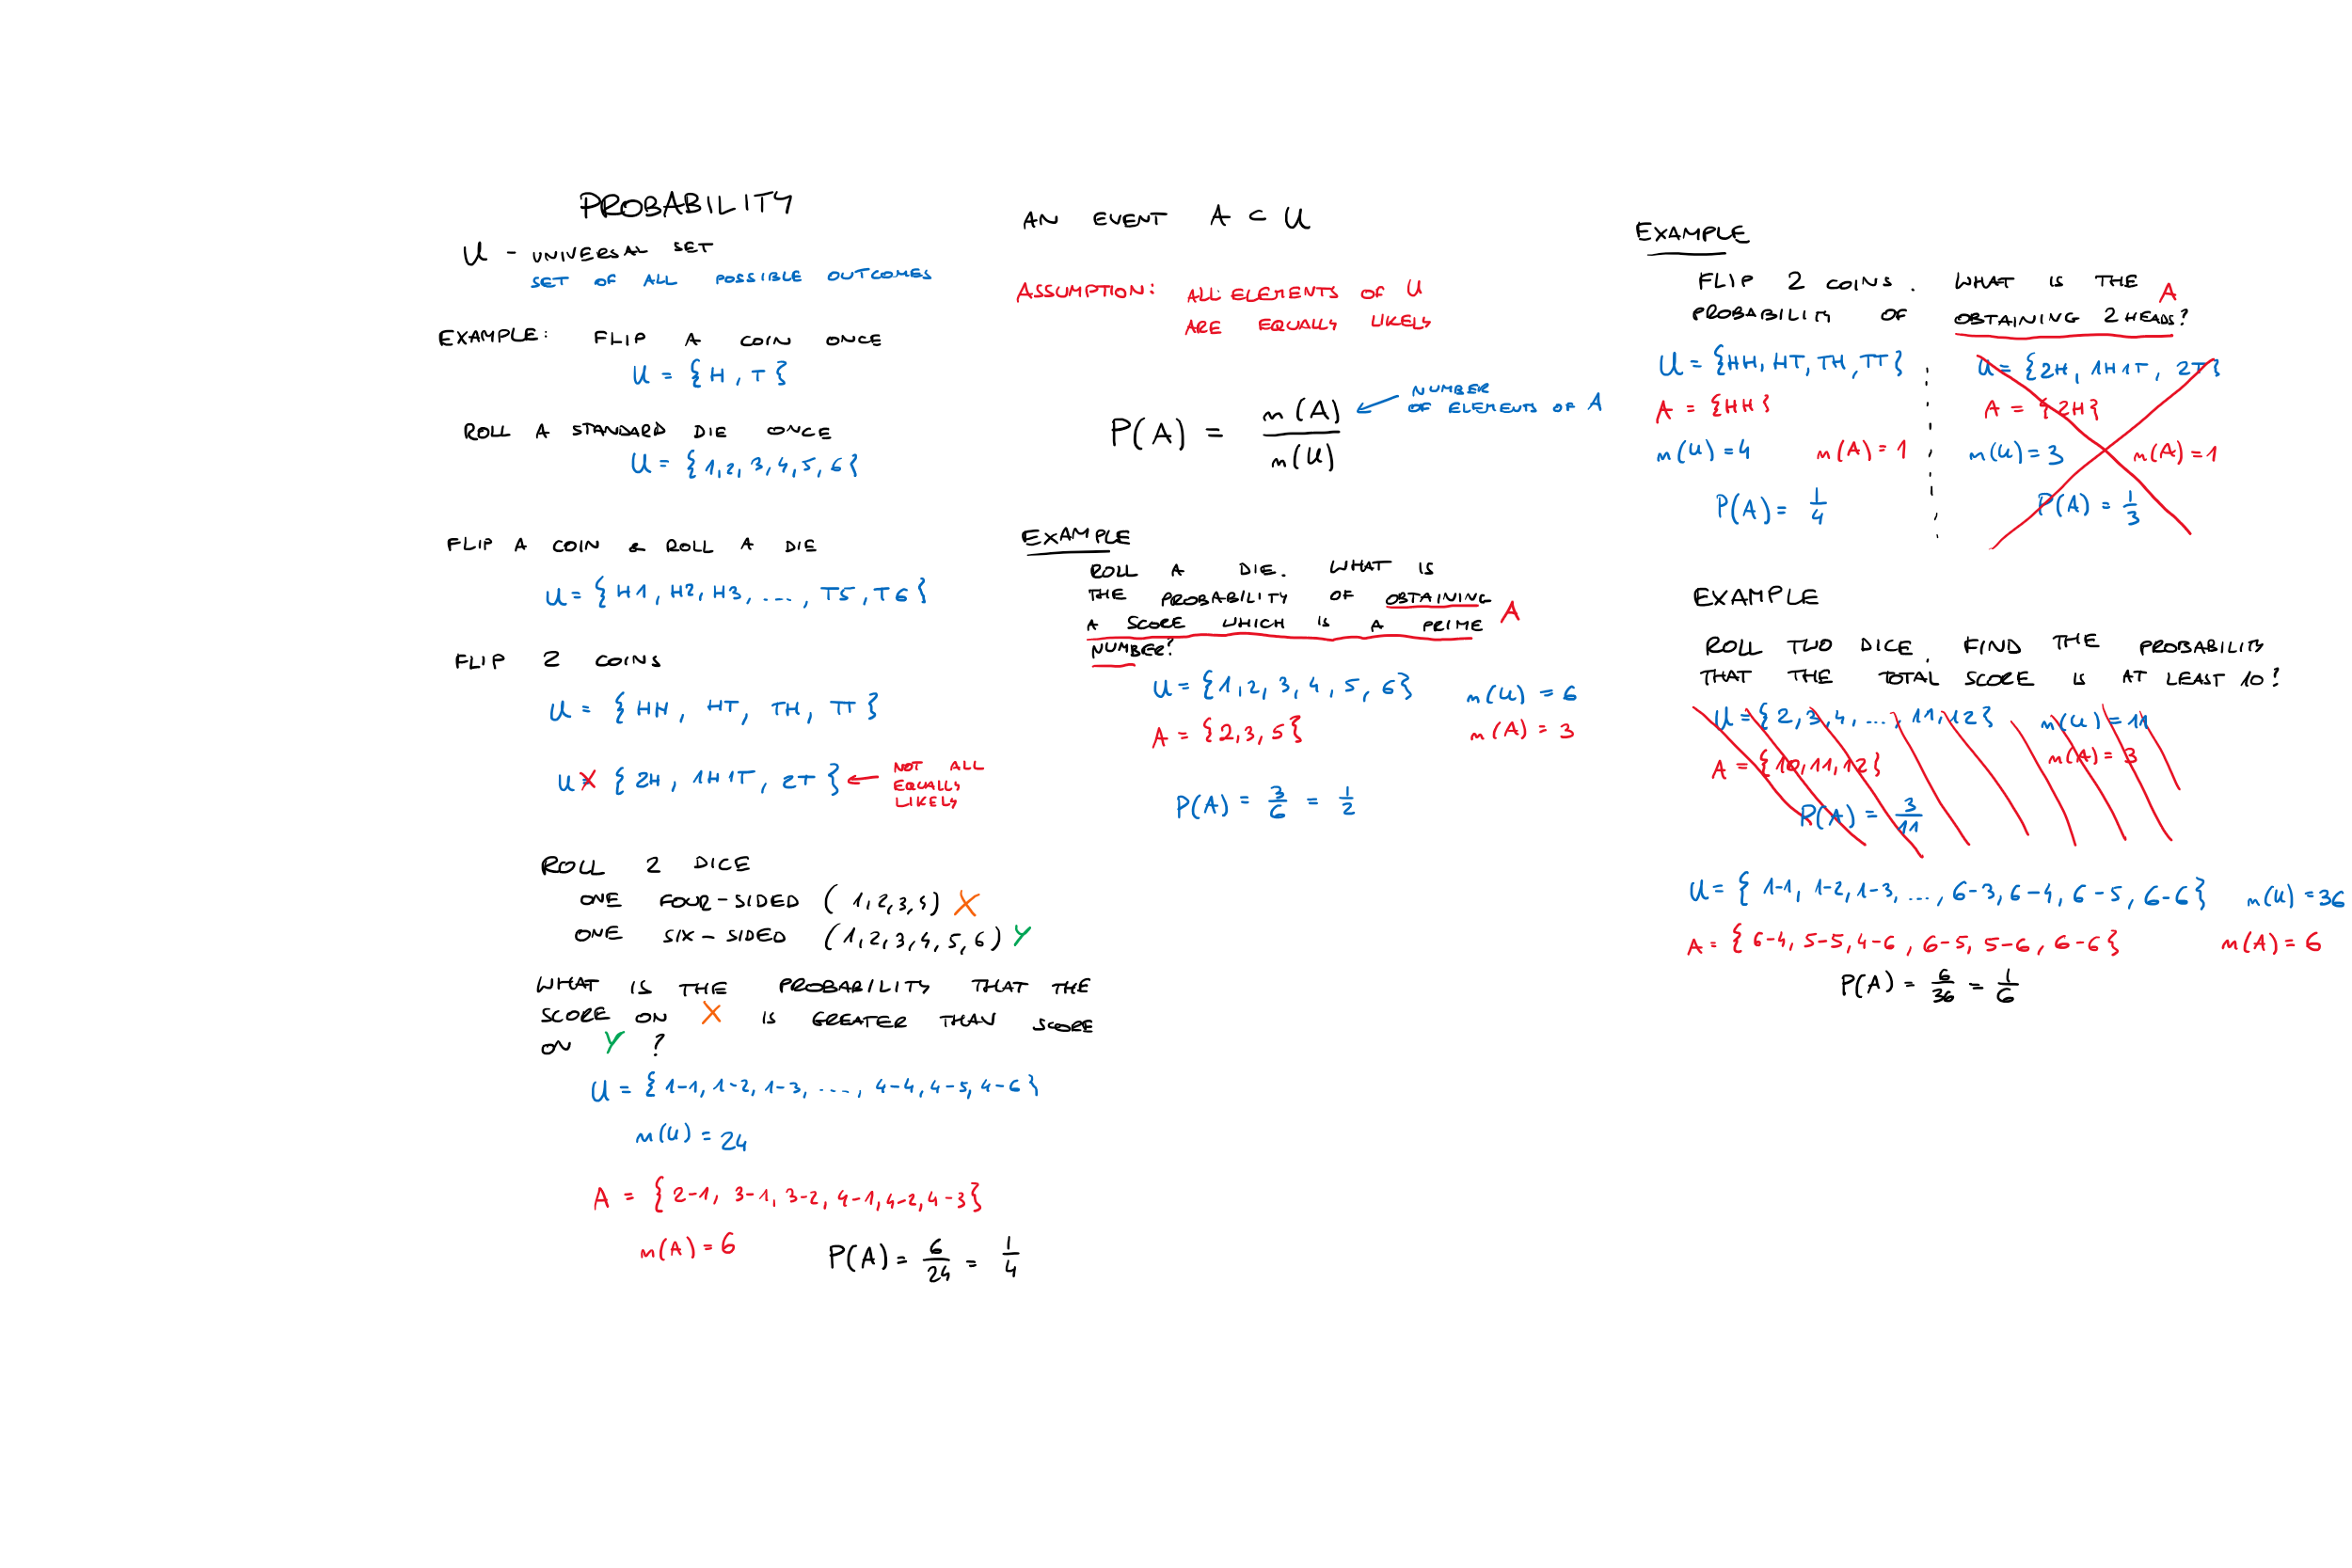 PROBABILITY
U - UNIVERSAL SET
SET OF ALL POSSIBLE OUTCOMES
EXAMPLE: FLIP A COIN ONCE
U = {H, T}
ROLL A STANDARD DIE ONCE
U = {1, 2, 3, 4, 5, 6}
FLIP A COIN & ROLL A DIE
U = {H1, H2, H3, ...., T5, T6}
FLIP 2 COINS
U = {HH, HT, TH, TT}
U = {2H, 1H1T, 2T} ← NOT ALL
EQUALLY
LIKELY
ROLL 2 DICE
ONE FOUR-SIDED (1, 2, 3, 4) X
ONE SIX-SIDED (1, 2, 3, 4, 5, 6) Y
WHAT IS THE PROBABILITY THAT THE
SCORE ON X IS GREATER THAN SCORE
ON Y ?
U = {1-1, 1-2, 1-3, ...., 4-4, 4-5, 4-6}
n(U) = 24
A = {2-1, 3-1, 3-2, 4-1, 4-2, 4-3}
n(A) = 6 P(A) = 6/24 = 1/4
AN EVENT A ⊂ U
ASSUMPTION: ALL ELEMENTS OF U
ARE EQUALLY LIKELY
P(A) = n(A)/n(U) ← NUMBER
OF ELEMENTS OF A
EXAMPLE
ROLL A DIE. WHAT IS
THE PROBABILITY OF OBTAINING
A SCORE WHICH IS A PRIME A
NUMBER?
U = {1, 2, 3, 4, 5, 6} n(U) = 6
A = {2, 3, 5} n(A) = 3
P(A) = 3/6 = 1/2
EXAMPLE
FLIP 2 COINS. WHAT IS THE A
PROBABILITY OF OBTAINING 2 HEADS?
U = {HH, HT, TH, TT} U = {2H, 1H1T, 2T}
A = {HH} A = {2H}
n(U) = 4 n(A) = 1 n(U) = 3 n(A) = 1
P(A) = 1/4 P(A) = 1/3
EXAMPLE
ROLL TWO DICE. FIND THE PROBABILITY
THAT THE TOTAL SCORE IS AT LEAST 10?
U = {2, 3, 4, ..., 11, 12} n(U) = 11
A = {10, 11, 12} n(A) = 3
P(A) = 3/11
U = {1-1, 1-2, 1-3, ..., 6-3, 6-4, 6-5, 6-6} n(U) = 36
A = {6-4, 5-5, 4-6, 6-5, 5-6, 6-6} n(A) = 6
P(A) = 6/36 = 1/6